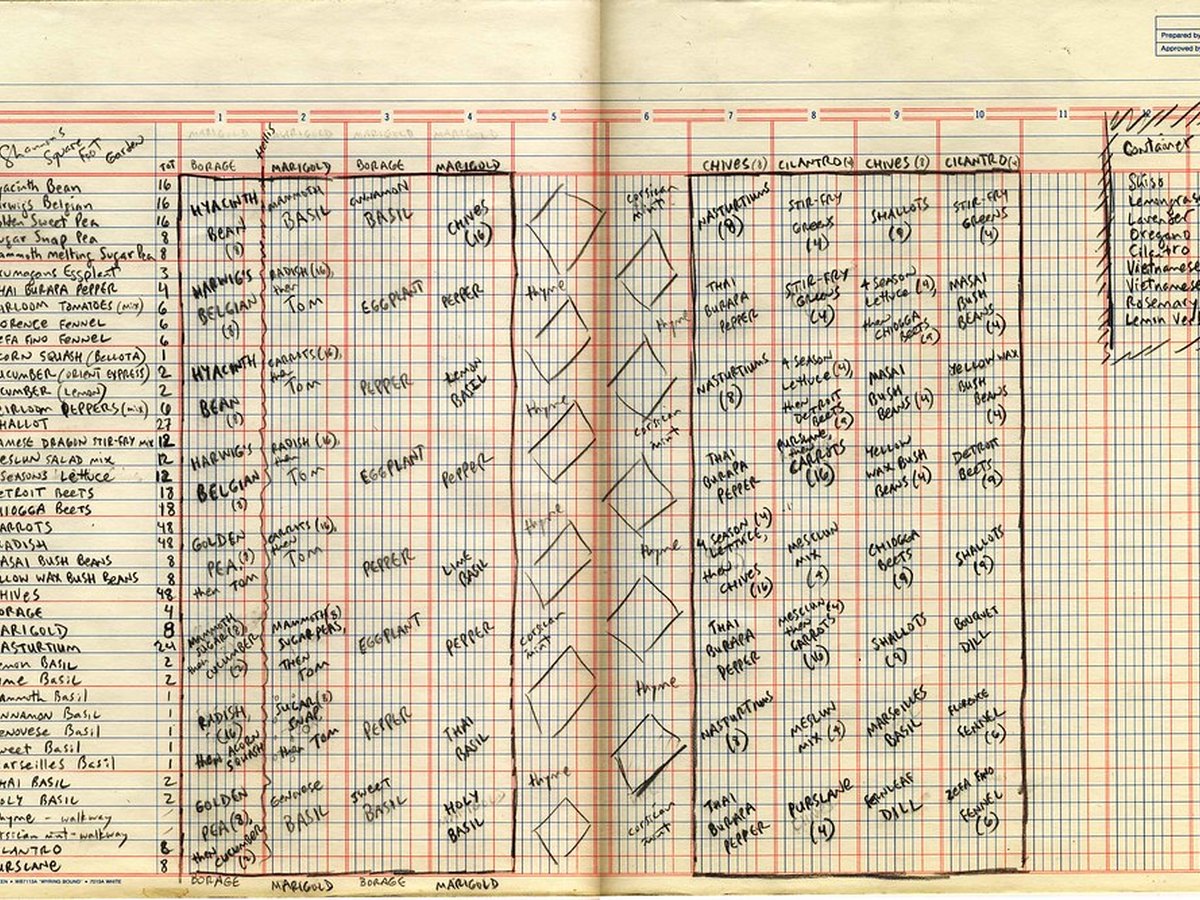 Prepared by
Approved by
1 2 3 4 5 6 7 8 9 10 11
Shannon's
Square Foot
Garden
TOT
MARIGOLD MARIGOLD MARIGOLD MARIGOLD
trellis
BORAGE MARIGOLD BORAGE MARIGOLD
CHIVES (8) CILANTRO (4) CHIVES (8) CILANTRO (4)
Container
yacinth Bean 16
arwigs Belgian 16
olden Sweet Pea 16
ugar Snap Pea 8
ammoth Melting Sugar Pea 8
kumogans Eggplant 3
HAI BURAPA PEPPER 4
IRLOOM TOMATOES (mix) 6
ORENCE FENNEL 6
EFA FINO FENNEL 6
CORN SQUASH (BELLOTA) 1
UCUMBER (ORIENT EXPRESS) 2
UCUMBER (LEMON) 2
EIRLOOM PEPPERS (mix) 6
HALLOT 27
AMESE DRAGON STIR-FRY MX 12
ESCLUN SALAD MIX 12
SEASONS' LETTUCE 12
ETROIT BEETS 18
HIOGGA BEETS 18
ARROTS 48
ADISH 48
ASAI BUSH BEANS 8
LLOW WAX BUSH BEANS 8
HIVES 48
ORAGE 4
ARIGOLD 8
ASTURTIUM 24
emon BASIL 2
ime BASIL 2
ammoth Basil 1
nnamon Basil 1
enovese Basil 1
weet Basil 1
arseilles Basil 1
HAI BASIL 2
OLY BASIL 2
hyme - walkway
rsican mint - walkway
LANTRO 8
URSLANE 8
HYACINTH
BEAN
(8)
HARWIG'S
BELGIAN
(8)
HYACINTH
BEAN
(8)
HARWIG'S
BELGIAN
(8)
GOLDEN
PEA,(8)
then TOM
MAMMOTH
SUGAR (8)
then CUCUMBER
(2)
RADISH,
(16)
then ACORN
SQUASH
GOLDEN
PEA (8),
then CUCUMBER
(2)
MAMMOTH
BASIL
RADISH (16),
then
TOM
CARROTS (16),
then
TOM
RADISH (16),
then
TOM
CARROTS (16),
then
TOM
MAMMOTH (8)
SUGAR PEAS,
THEN
TOM
SUGAR (8)
SNAP,
then TOM
GENOVESE
BASIL
CINNAMON
BASIL
EGGPLANT
PEPPER
EGGPLANT
PEPPER
EGGPLANT
PEPPER
SWEET
BASIL
CHIVES
(16)
PEPPER
LEMON
BASIL
PEPPER
LIME
BASIL
PEPPER
THAI
BASIL
HOLY
BASIL
thyme
thyme
thyme
corsican
mint
thyme
corsican
mint
thyme
corsican
mint
thyme
thyme
corsican
mint
NASTURTIUMS
(8)
THAI
BURAPA
PEPPER
NASTURTIUMS
(8)
THAI
BURAPA
PEPPER
4 SEASON (4)
LETTUCE,
then
CHIVES
(16)
THAI
BURAPA
PEPPER
NASTURTIUMS
(8)
THAI
BURAPA
PEPPER
STIR-FRY
GREENS
(4)
STIR-FRY
GREENS
(4)
4 SEASON
LETTUCE (4),
then
DETROIT
BEETS
(9)
PURSLANE,
then
CARROTS
(16)
MESCLUN
MIX
(4)
MESCLUN (4)
then
CARROTS
(16)
MESLUN
MIX (4)
PURSLANE
(4)
SHALLOTS
(9)
4 SEASON
LETTUCE (4),
then
CHIOGGA
BEETS
(9)
MASAI
BUSH
BEANS (4)
YELLOW
WAX BUSH
BEANS (4)
CHIOGGA
BEETS
(9)
SHALLOTS
(9)
MARSEILLES
BASIL
FERNLEAF
DILL
STIR-FRY
GREENS
(4)
MASAI
BUSH
BEANS
(4)
YELLOW WAX
BUSH
BEANS
(4)
DETROIT
BEETS
(9)
SHALLOTS
(9)
BOUQUET
DILL
FLORENCE
FENNEL
(6)
ZEFA FINO
FENNEL
(6)
Shiso
Lemongras
Lavender
Oregano
Cilantro
Vietnamese
Vietnamese
Rosemary
Lemon Verb
BORAGE MARIGOLD BORAGE MARIGOLD